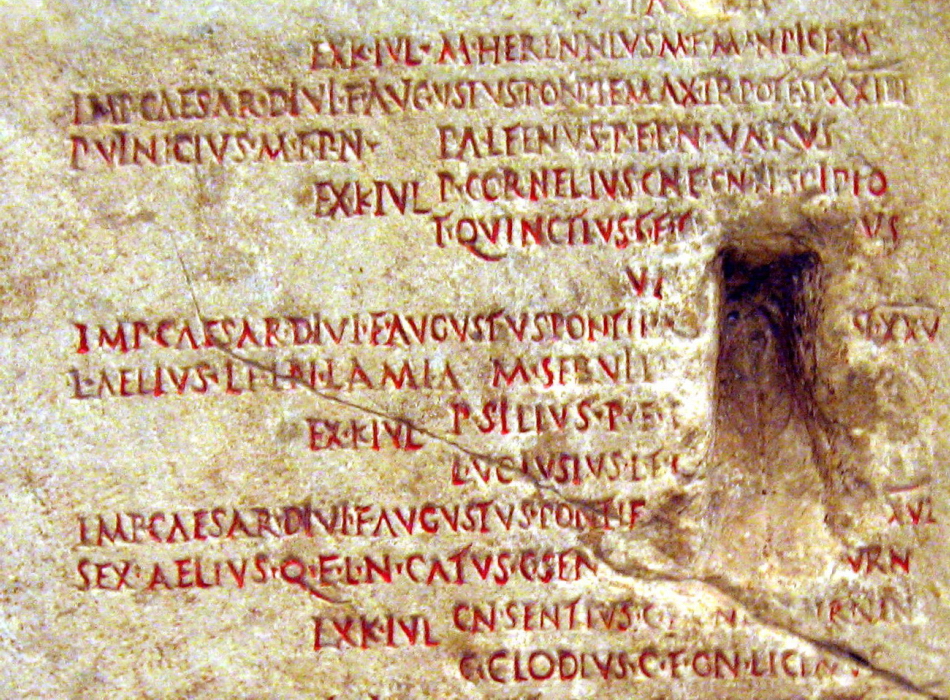 EX·K·IVL· M·HERENNIVS M·F·M·N PICENS
IMP·CAESAR·DIVI·F·AVGVSTVS PONTIF MAX TR POTEST XXIIII
P·VINICIVS·M·F·P·N· P·ALFENVS·P·F·P·N·VARVS
EX·K·IVL P·CORNELIVS CN·F·CN·N SCIPIO
T·QVINCTIVS
IMP·CAESAR·DIVI·F·AVGVSTVS PONTIF XXV
L·AELIVS·L·F·L·N·LAMIA M·SERVILI
EX·K·IVL P·SILIVS·P·F·
L·VOLVSIVS·L·F·
IMP·CAESAR·DIVI·F·AVGVSTVS·PONTIF XXVI
SEX·AELIVS·Q·F·L·N·CATVS·C·SEN VRN
EX·K·IVL CN·SENTIVS·C
C·CLODIVS·C·F·C·N·LICINVS